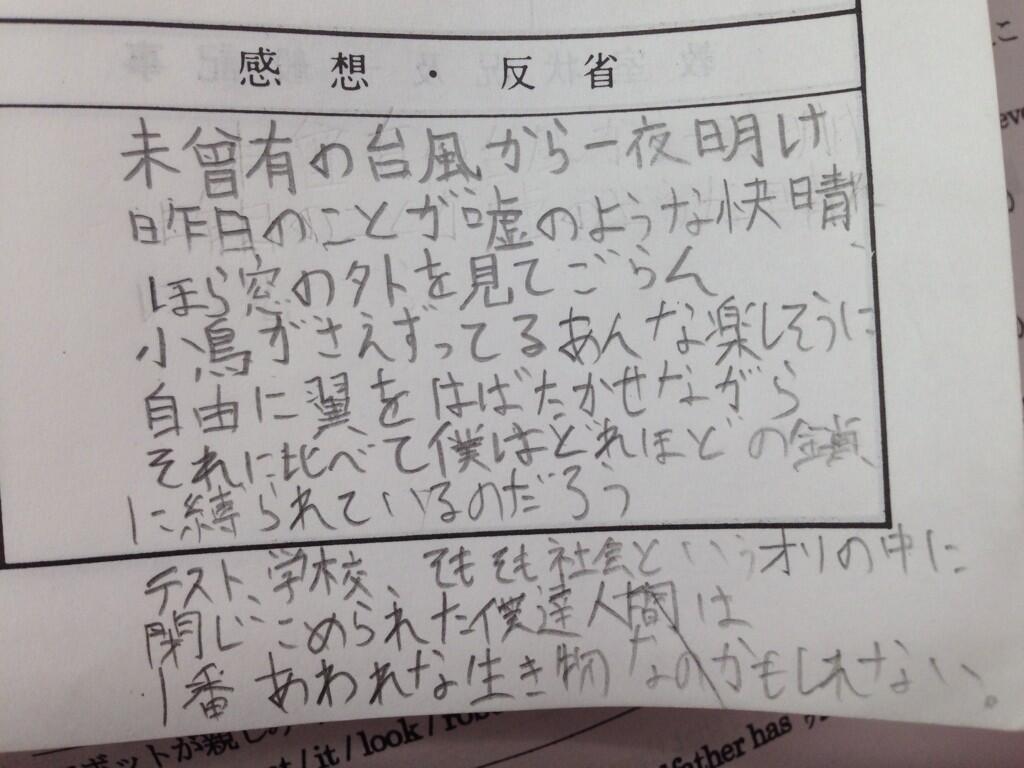 感想・反省
未曾有の台風から一夜明け
昨日のことが嘘のような快晴
ほら窓の外を見てごらん
小鳥がさえずってるあんな楽しそうに
自由に翼をはばたかせながら
それに比べて僕はどれほどの鎖
に縛られているのだろう
テスト、学校、そもそも社会というオリの中に
閉じこめられた僕達人間は
一番あわれな生き物なのかもしれない。
ボットが親しみ
t / it / look /
father has